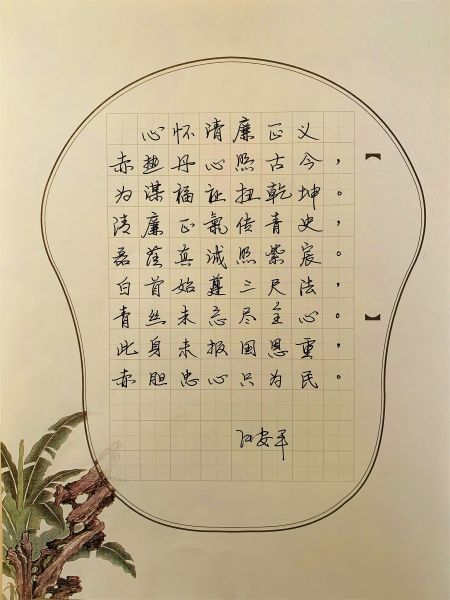 心怀清廉正义
赤热丹心照古今，
为谋福祉扭乾坤。
清廉正氣传青史，
磊落真诚照紫宸。
白首始遵三尺法，
青丝未忘尽全心。
此身未报国恩重，
赤胆忠心只为民。
【 】
安平